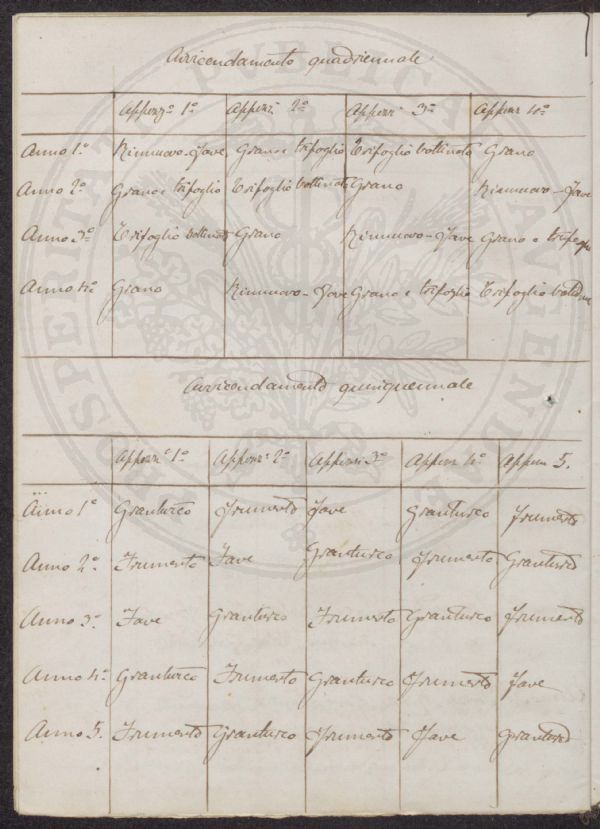 Avvicendamento quadriennale
Appezz.º 1º Appezz. 2º Appezz. 3º Appezz 4º
Anno 1º Rinnuovo-Fave Grano e trifoglio Trifoglio bollinato Grano
Anno 2º Grano e trifoglio Trifoglio bollinato Grano Rinnuovo-Fave
Anno 3º Trifoglio bollinato Grano Rinnuovo-Fave Grano e trifoglio
Anno 4º Grano Rinnuovo-Fave Grano e trifoglio Trifoglio
Avvicendamento quinquennale
Appezz.º 1º Appezz. 2º Appezz. 3º Appezz 4º Appezz 5.
Anno 1º Granturco Frumento Fave Granturco Frumento
Anno 2º Frumento Fave Granturco Frumento Granturco
Anno 3º Fave Granturco Frumento Granturco Frumento
Anno 4º Granturco Frumento Granturco Frumento Fave
Anno 5. Frumento Granturco Frumento Fave Granturco
PROSPERITATI PUBLICAE AUGENDAE